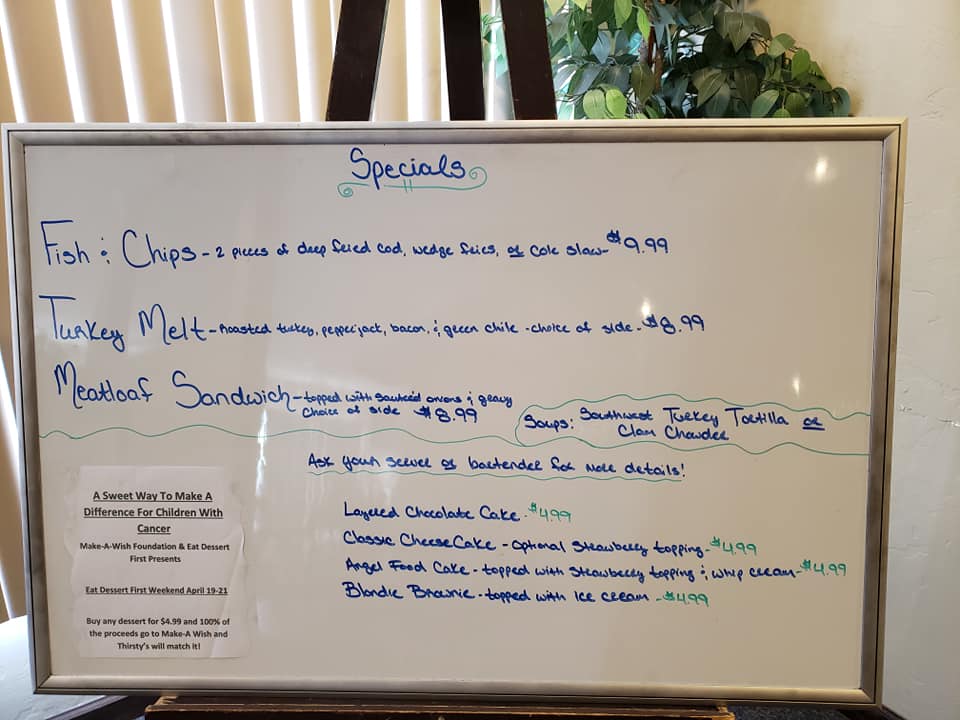 Specials
Fish & Chips - 2 pieces of deep fried cod, wedge fries, or cole slaw - $9.99
Turkey Melt - Roasted turkey, pepperjack, bacon, & green chile - choice of side - $8.99
Meatloaf Sandwich - topped with sauteed onions & gravy
choice of side $8.99
Soups: Southwest Turkey Tortilla or
Clam Chowder
Ask your server or bartender for more details!
A Sweet Way To Make A
Difference For Children With
Cancer
Make-A-Wish Foundation & Eat Dessert
First Presents
Eat Dessert First Weekend April 19-21
Buy any dessert for $4.99 and 100% of
the proceeds go to Make-A Wish and
Thirsty's will match it!
Layered Chocolate Cake - $4.99
Classic CheeseCake - optional strawberry topping - $4.99
Angel Food Cake - topped with strawberry topping & whip cream - $4.99
Blondie Brownie - topped with Ice cream - $4.99